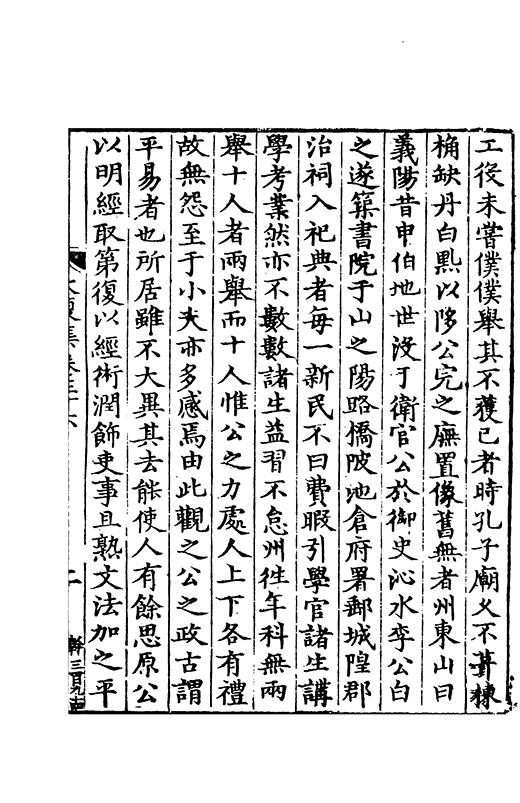 工役未嘗僕僕舉其不獲已者時孔子廟久不葺棟
桷缺丹白黑㸃以陊公完之廡置像舊無者州東山曰
義陽昔申伯地世沒于衛官公於御史沁水李公白
之遂築書院于山之陽路橋陂池倉府署郵城隍郡
治祠入祀典者每一新民不曰費暇引學官諸生講
學考業然亦不數數諸生益習不怠州徃年科無兩
舉十人者兩舉而十人惟公之力處人上下各有禮
故無怨至于小夫亦多感焉由此觀之公之政古謂
平易者也所居雖不大異其去能使人有餘思原公
以明經取第復以經術潤飾吏事且熟文法加之平
集卷三十六
二